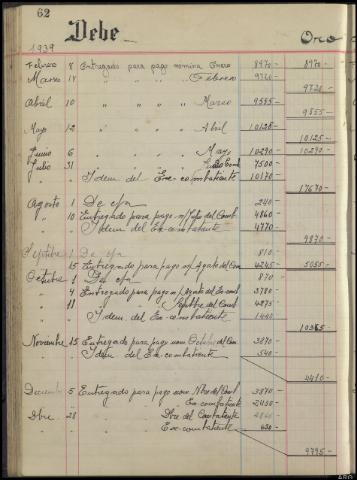 62
Debe
Oro
1939
Febrero 8 Entregado para pago nomina Enero 8970- 8970-
Marzo 14 " " " " Febrero 9726- 9726-
Abril 10 " " " " Marzo 9555- 9555-
Mayo 12 " " " " Abril 10125- 10125-
Junio 6 " " " " Mayo 10290- 10290-
Julio 31 " " " 7500-
" Idem del Ex-combatiente 10170- 17670-
Agosto 1 De c/n 240-
" 10 Entregado para pago n/ Julio del Comb 4860-
" Idem del Ex-combatiente 4770- 9870-
Septbre 1 De c/n 810-
15 Entregado para pago n/ Agosto del Com 4245- 5055-
Octubre 1 De c/n 870-
" 4 Entregado para pago n/ Agosto del Ex-comb 3780-
" 11 " " " " Septbre del Comb 4275-
" " Idem del Ex-combatiente 1440- 10365-
Noviembre 15 Entregado para pago nom Octubre del Com 3870-
" Idem del Ex-combatiente 540- 4410-
Diciembre 5 Entregado para pago nom Nbre del Comb 3870-
" " " " Ex-combatiente 2430-
Dbre 28 " " " Dbre del Combatiente
" " " " Ex-combatiente 630-
9795-